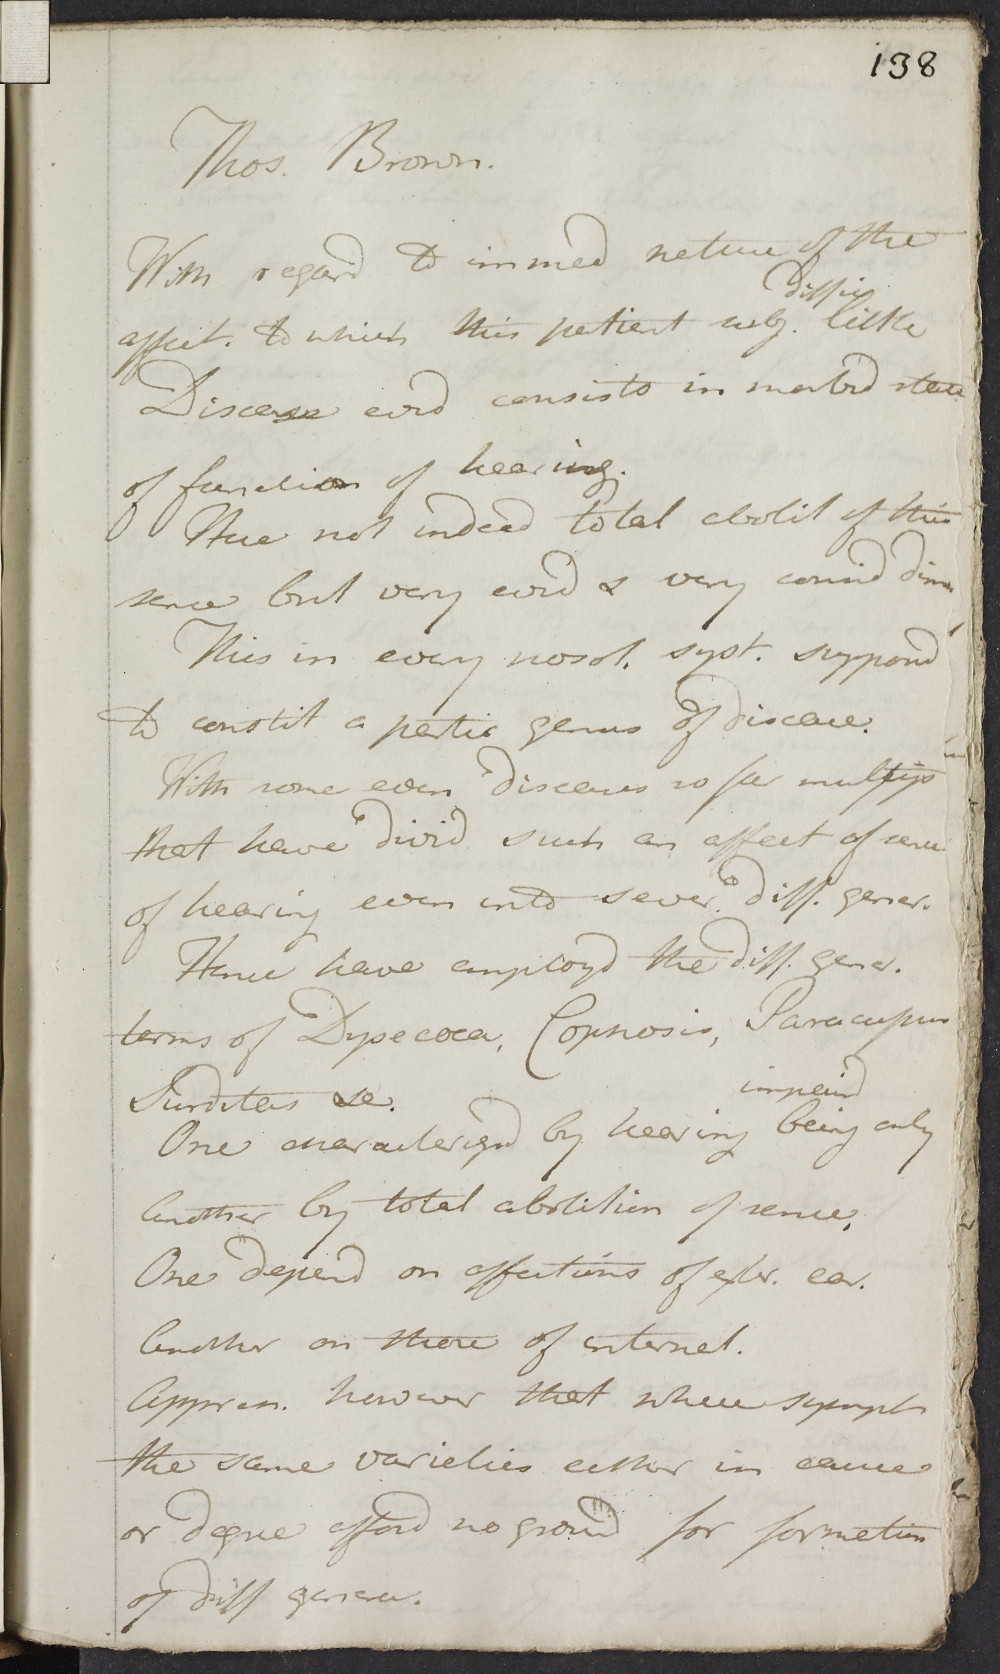 138
Thos. Brown.
With regard to immed nature of the
diffic
affect. to which this patient subj. little
Disease evid consists in morbid state
of function of hearing.
Here not indeed total abolit of this
sense but very evid & very consid dim
This in every nosol. syst. suppond
to constit a partic genus of disease.
With some even diseases so far multips
that have divid such an affect of sense
of hearing even into sever. diff. gener.
Hence have employd the diff. gener.
terms of Dysecoea, Cophosis, Paracusis
Surditas &c.
impaird
One characterizd by hearing being only
Another by total abolition of sense,
One depend on affections of exter. ear.
Another on those of internal.
Appreh. however that where sympts
the same varieties either in cause
or degree afford no ground for formation
of diff genera.